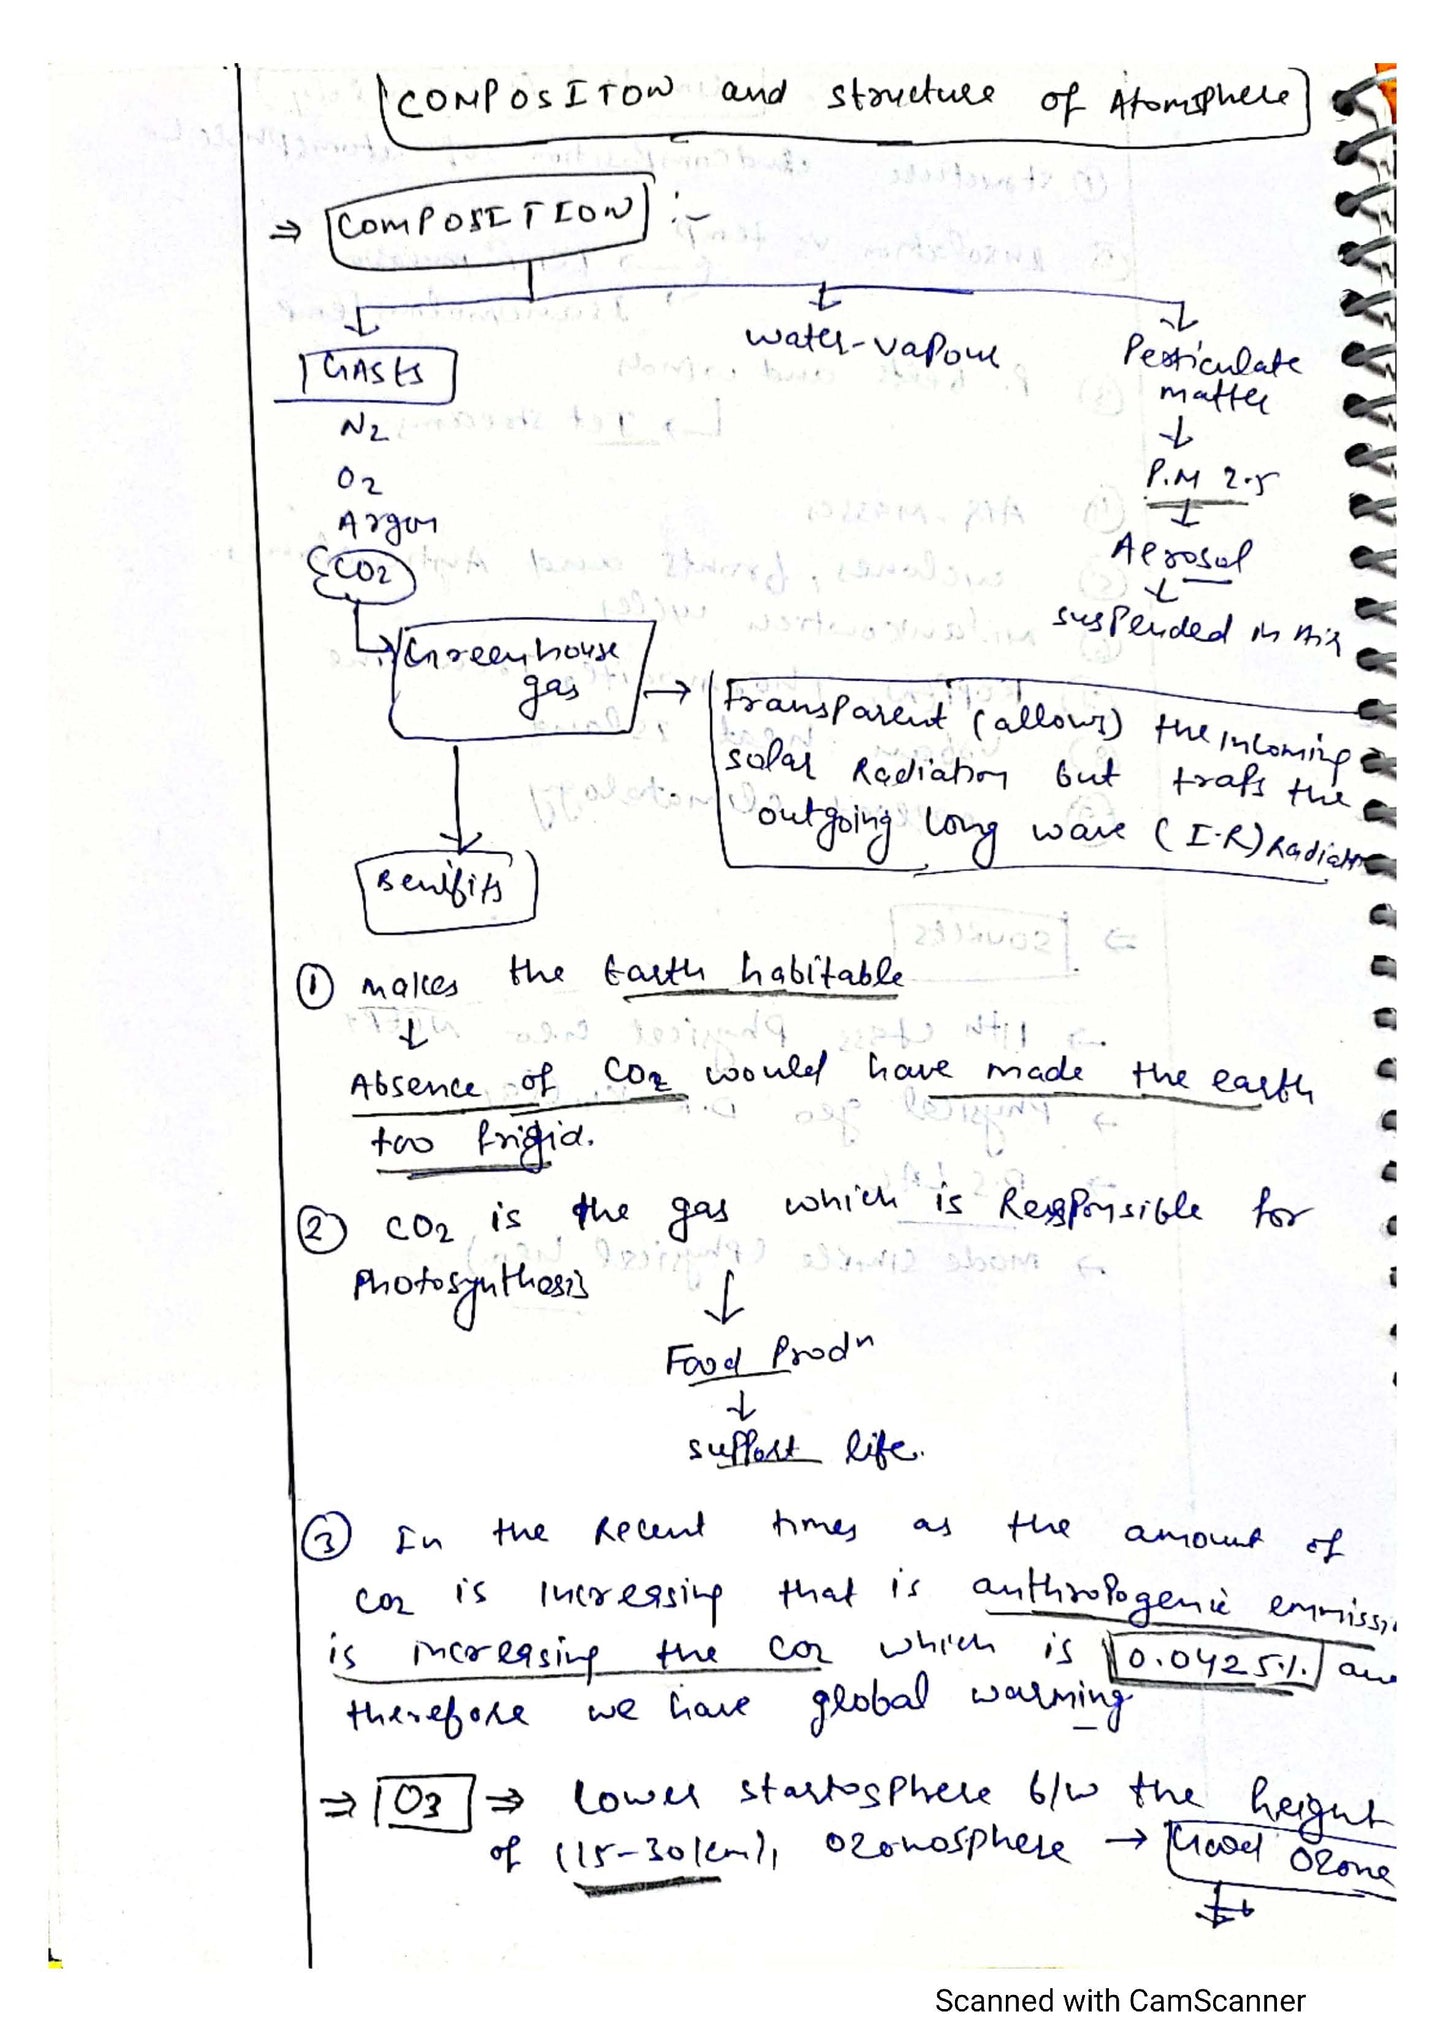 COMPOSITON and structure of Atomsphere
⇒ COMPOSITION :-
GASES
water-vapour
Perticulate
matter
N2
O2
Argon
CO2
P.M 2.5
Aerosol
suspended in Air
Greenhouse
gas
→ transparent (allows) the incoming
solar Radiation but traps the
outgoing long wave (I.R) Radiatn
Benifits
① makes the Earth habitable
Absence of CO2 would have made the earth
too frigid.
② CO2 is the gas which is Responsible for
Photosynthesis
Food Prodn
support life.
③ In the Recent times as the amount of
CO2 is increasing that is anthropogenic emmissi
is increasing the CO2 which is 0.0425% an
therefore we have global warming
⇒ O3 ⇒ lower startosphere b/w the height
of (15-30km), Ozonosphere → Good Ozone
Scanned with CamScanner